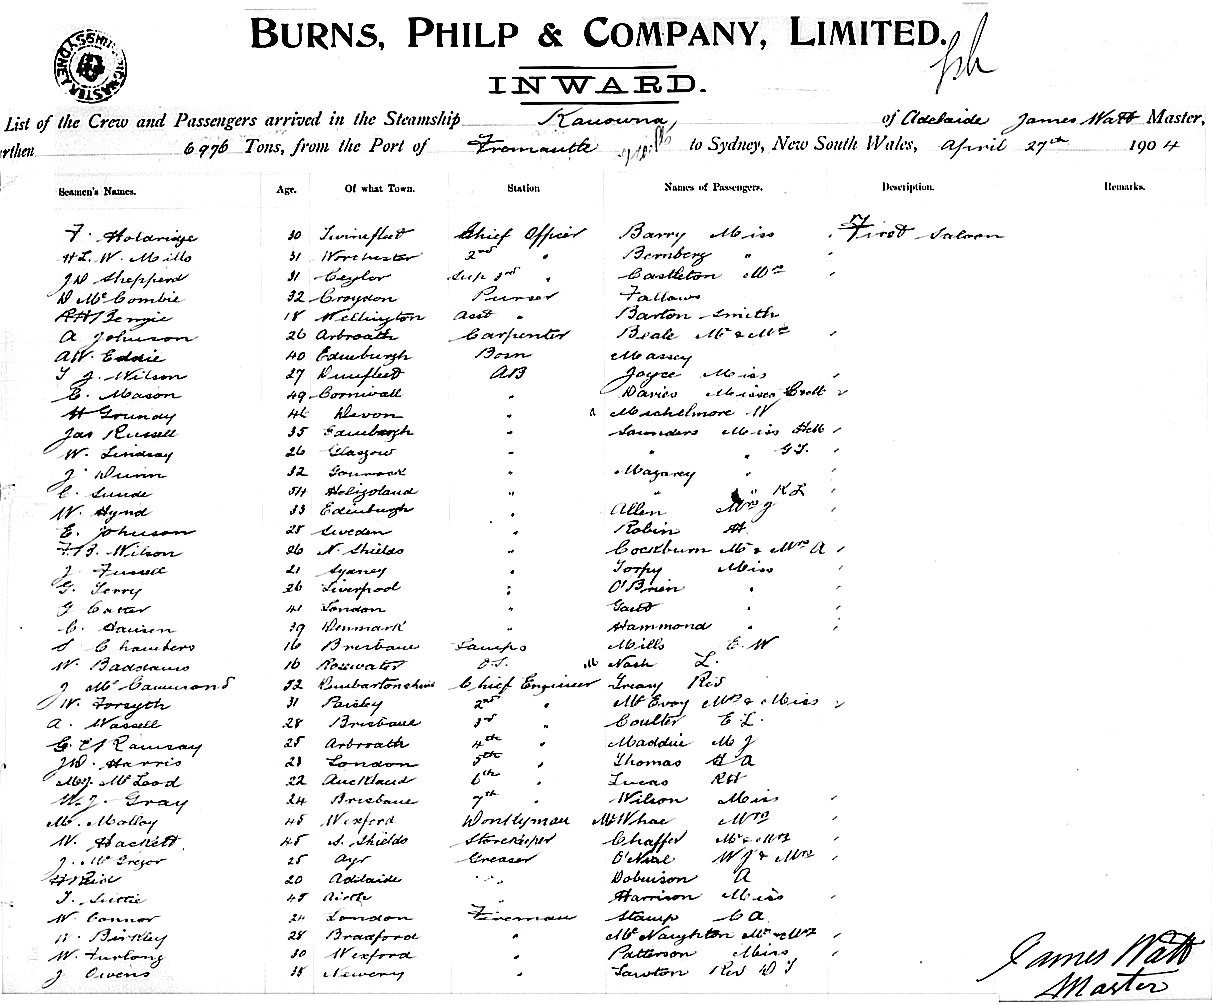 BURNS, PHILP & COMPANY, LIMITED.
INWARD.
List of the Crew and Passengers arrived in the Steamship Kanowna, of Adelaide James Watt Master,
rthen 6976 Tons, from the Port of Fremantle to Sydney, New South Wales, April 27th 1904
Seamen's Names. Age. Of what Town. Station Names of Passengers. Description. Remarks.
F. Holdridge 30 Chief Officer Barry Miss First Saloon
H.L.W. Mills 31 Worchester 2nd " Bernberg "
JD Shepperd 31 Ceylon Sup 3rd " Castleton Mrs
D McCombie 32 Croydon Purser Fallows
18 Wellington Asst " Barton Smith
A Johnson 26 Arbroath Carpenter Beale Mr & Mrs
AW. Eddie 40 Edinburgh Bosn Massey
T J. Wilson 27 AB Joyce Miss
C. Mason 49 Cornwall " Davies Misses
H Grundy 46 Devon " Michelmore W
Jas Russell 35 Edinburgh " Saunders Miss
W. Lindsay 26 Glasgow " " "
J Dunn 32 Gourock " Magarey "
C. Sunde 54 Holigoland " " "
W. Hynd 33 Edinburgh " Allen Mrs J
E. Johnson 28 Sweden " Robin H
F.B. Wilson 26 N. Shields " Cockburn Mr & Mrs A
J. Fussell 21 Sydney " Torpy Miss
G. Terry 26 Liverpool " O'Brien "
41 London " "
C. Hansen 39 Denmark " Hammond "
S Chambers 16 Brisbane Lamps Mills E W
W. Baddams 16 Rosewater O.S. Nash L.
J 32 Dumbartonshire Chief Engineer Rev
W. Forsyth 31 Paisley 2nd " McEvoy Mrs & Miss
A. Wassell 28 Brisbane 3rd " Coulter E L.
Ramsay 25 Arbroath 4th " Maddie M J
JD. Harris 23 London 5th " Thomas
MJ. McLeod 22 Auckland 6th " Lucas
W.J. Gray 24 Brisbane 7th " Wilson Miss
M. Molloy 45 Wexford Donkeyman McWhae Mrs
W. Hackett 45 S. Shields Storekeeper Chaffer Mr & Mrs
J. McGregor 25 Ayr Greaser O'Neal W J & Mrs
H Reid 20 Adelaide " Dobinson A
45 Airth " Harrison Miss
W Connor 24 London Fireman Stamp C A
Binkley 28 Bradford " McNaughton Mr & Mrs
W. Furlong 30 Wexford " Patterson Miss
J Owens 38 Newery " Lawton Rev
James Watt
Master